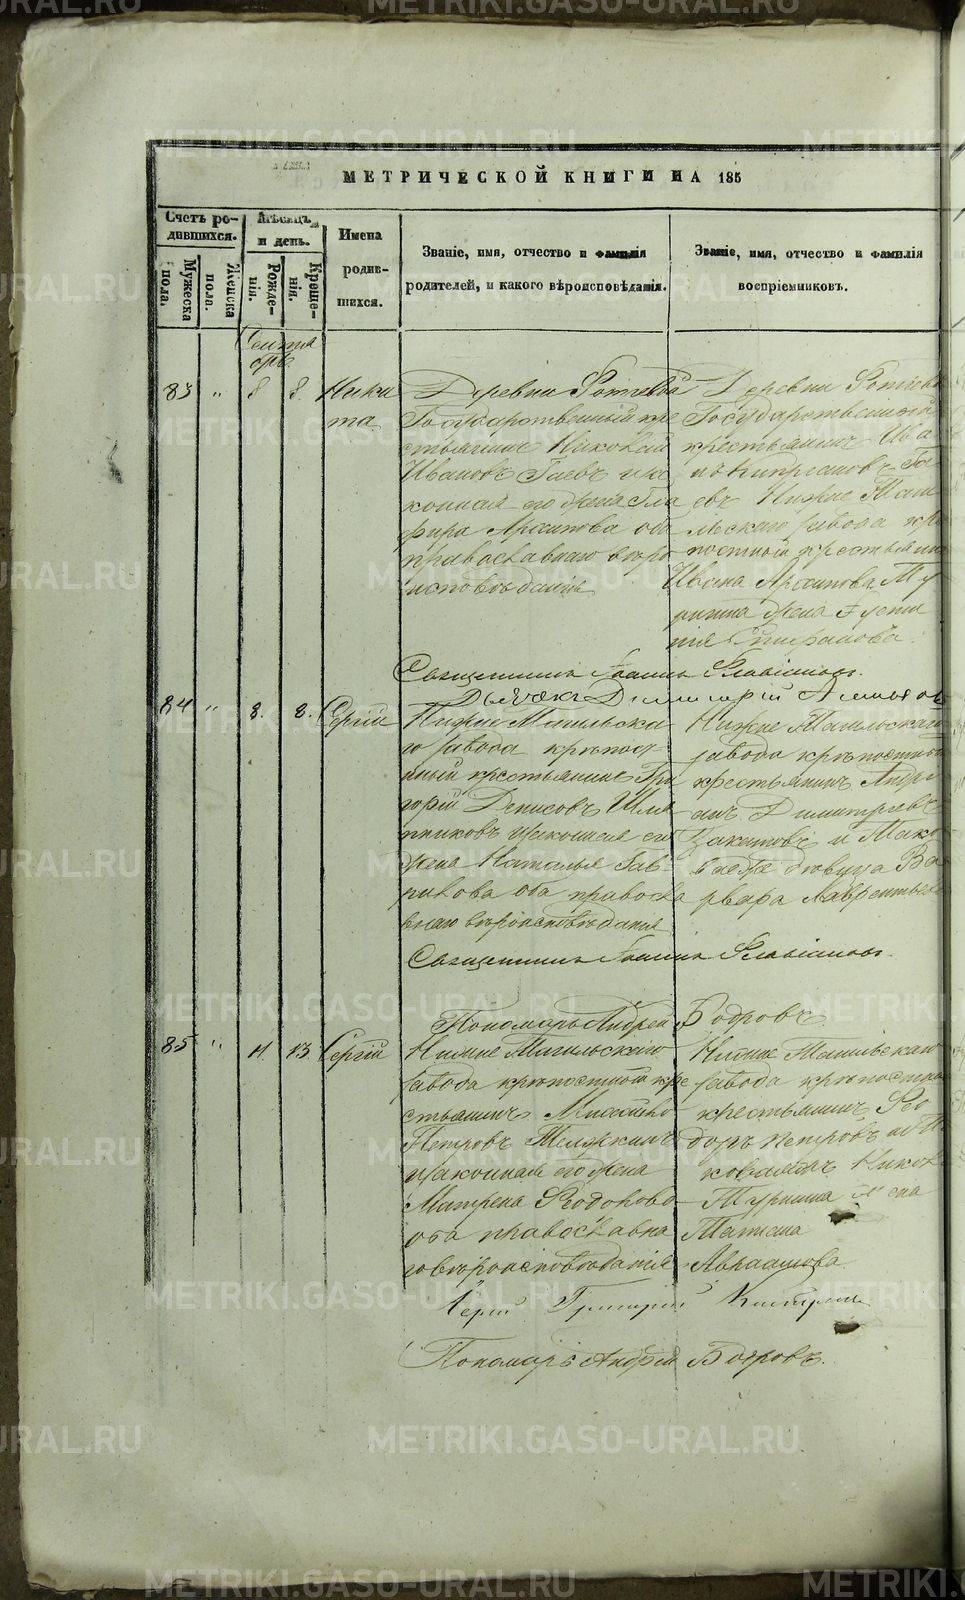 МЕТРИЧЕСКОЙ КНИГИ НА 185
Счетъ ро-
дившихся.
Мужеска пола.
Женска пола.
Мѣсяцъ
и день.
Рожде-
нія.
Креще-
нія.
Имена
родив-
шихся.
Званіе, имя, отчество и фамилія
родителей, и какого вѣроисповѣданія.
Званіе, имя, отчество и фамилія
воспріемниковъ.
Сентя
брь
83 " 8 8. Ники
та
Деревни
Государственный кре
стьянинъ Николай
Ивановъ Гаевъ и за
конная его жена Гла
фира Архипова оба
православнаго вѣро
исповѣданія
Деревни
Государственный
крестьянинъ Ива
нъ Кипріановъ Га
евъ Нижне Таги
льскаго завода крѣ
постный крестьянин
Ивана Архипова
жена
Священникъ Іоаннъ Славіановъ.
Дьячекъ Димитрій
84 " 8. 8. Сергій
Нижне Тагильска
го завода крѣпост
ный крестьянинъ Гри
горій Денисовъ Шля
пниковъ и законная его
жена Наталья Гав
рилова оба правосла
внаго вѣроисповѣданія
Нижне Тагильскаго
завода крѣпостный
крестьянинъ Андре
анъ Димитріевъ
и
дѣвица Ва
рвара Лаврентьева
Священникъ Іоаннъ Славіановъ.
Пономарь Андрей Бобровъ
85 " 11. 13 Сергій
Нижне Тагильскаго
завода крѣпостный кре
стьянинъ
Петровъ
и законная его жена
Матрена Ѳедорова
оба православна
го вѣроисповѣданія
Нижне Тагильскаго
завода крѣпостны
крестьянинъ Ѳео
доръ Петровъ
жена
Татіана
Авраамова
Іерей Григорій
Пономарь Андрей Бобровъ.
METRIKI.GASO-URAL.RU